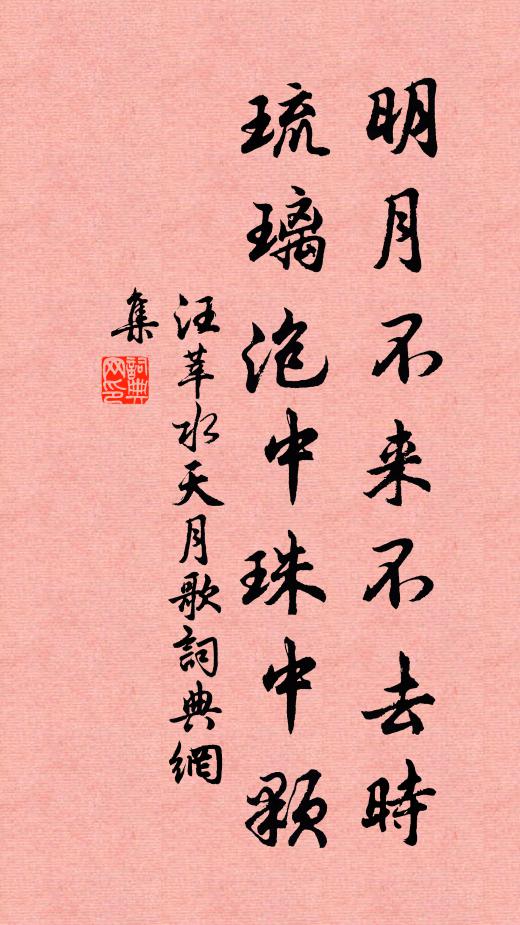 明月不来不去時
琉璃泡中珠中顆
汪莘水天月歌詞典網
集
詞典
网印